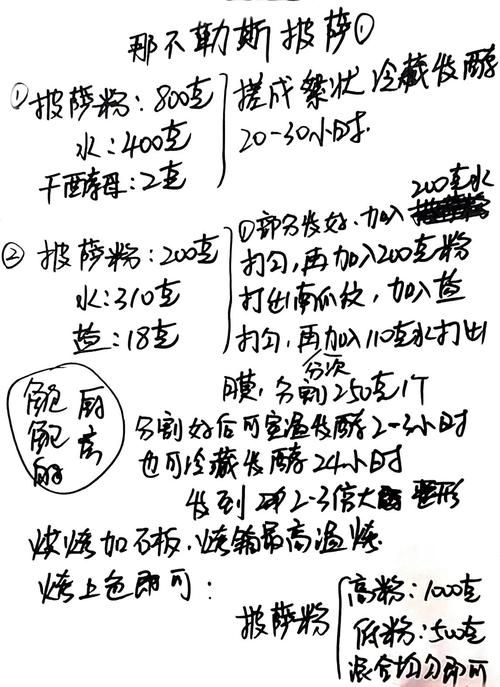 那不勒斯披萨①
①披萨粉：800克
水：400克
干酵母：2克
搓成絮状冷藏发酵
20-30小时.
②披萨粉：200克
水：310克
盐：18克
200克水
①部分发好.加入
打匀,再加入200克粉
打出南瓜纹,加入盐
打匀,再加入110克水打出
分次
膜,分割250克1个
分割好后可室温发酵2-3小时
也可冷藏发酵24小时
发到 2-3倍大 整形
烤加石板.烤箱最高温烤.
烤上色即可：
披萨粉
高粉：1000克
低粉：500克
混合均匀即可